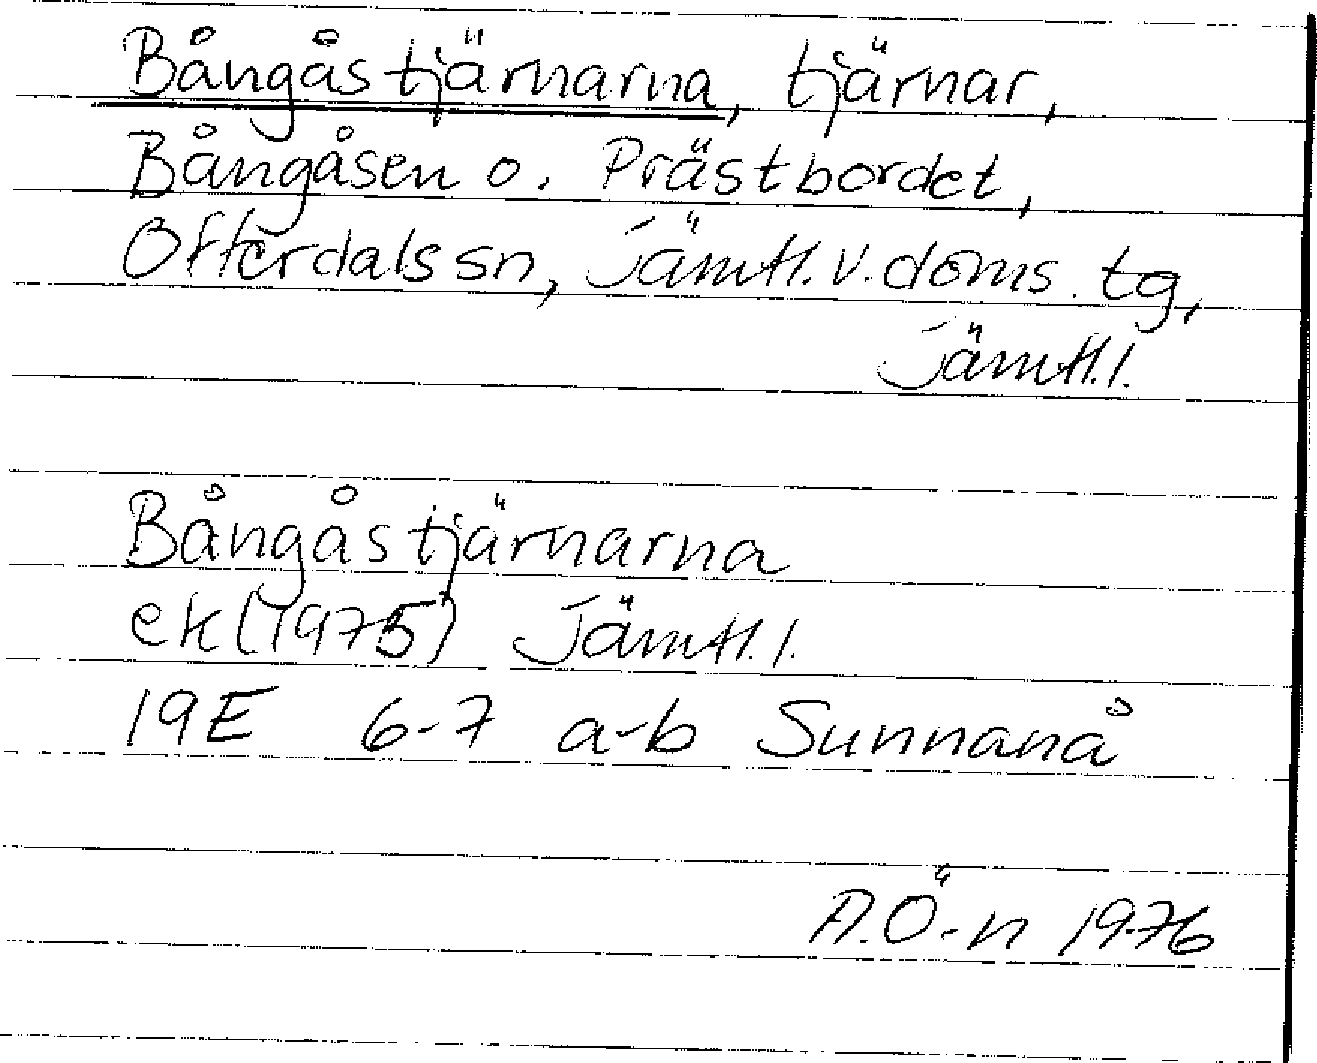 Bångåstjärnarna, tjärnar,
Bångåsen o. Prästbordet,
Offerdals sn, Jämtl. v. doms. tg,
Jämtl. l.
Bångåstjärnarna
ek (1975) Jämtl. l.
19E 6-7 a-b Sunnanå
A.Ö-n 1976